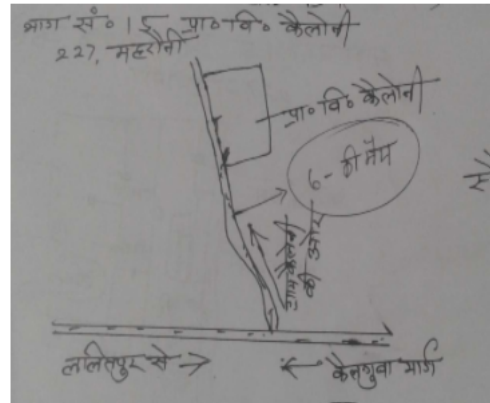 भाग सं० 15 प्रा० वि० कैलोनी
227, महरौनी
प्रा० वि० कैलोनी
की मैप
ग्राम कैलोनी
की ओर
ललितपुर से →
← कैलगुवा मार्ग